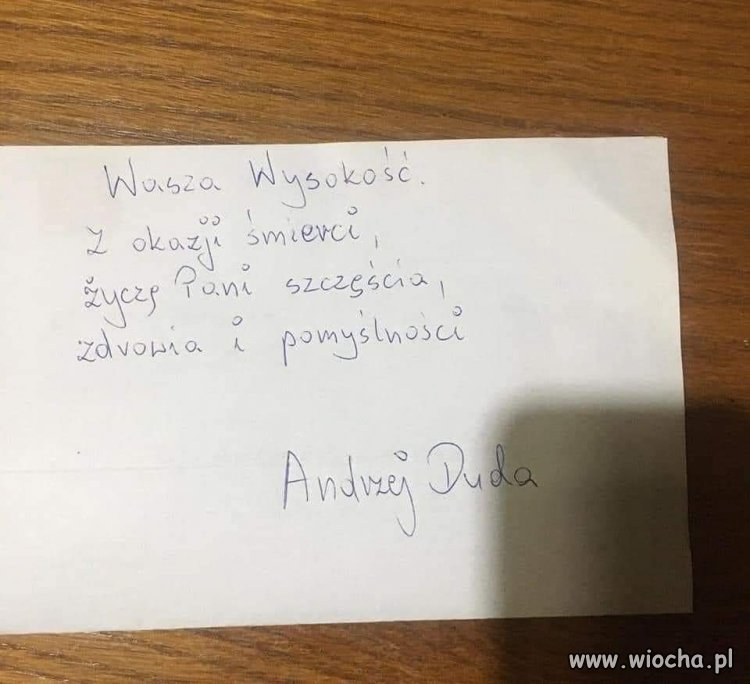 Wasza Wysokość.
Z okazji śmierci,
życzę Pani szczęścia,
zdrowia i pomyślności
Andrzej Duda
www.wiocha.pl